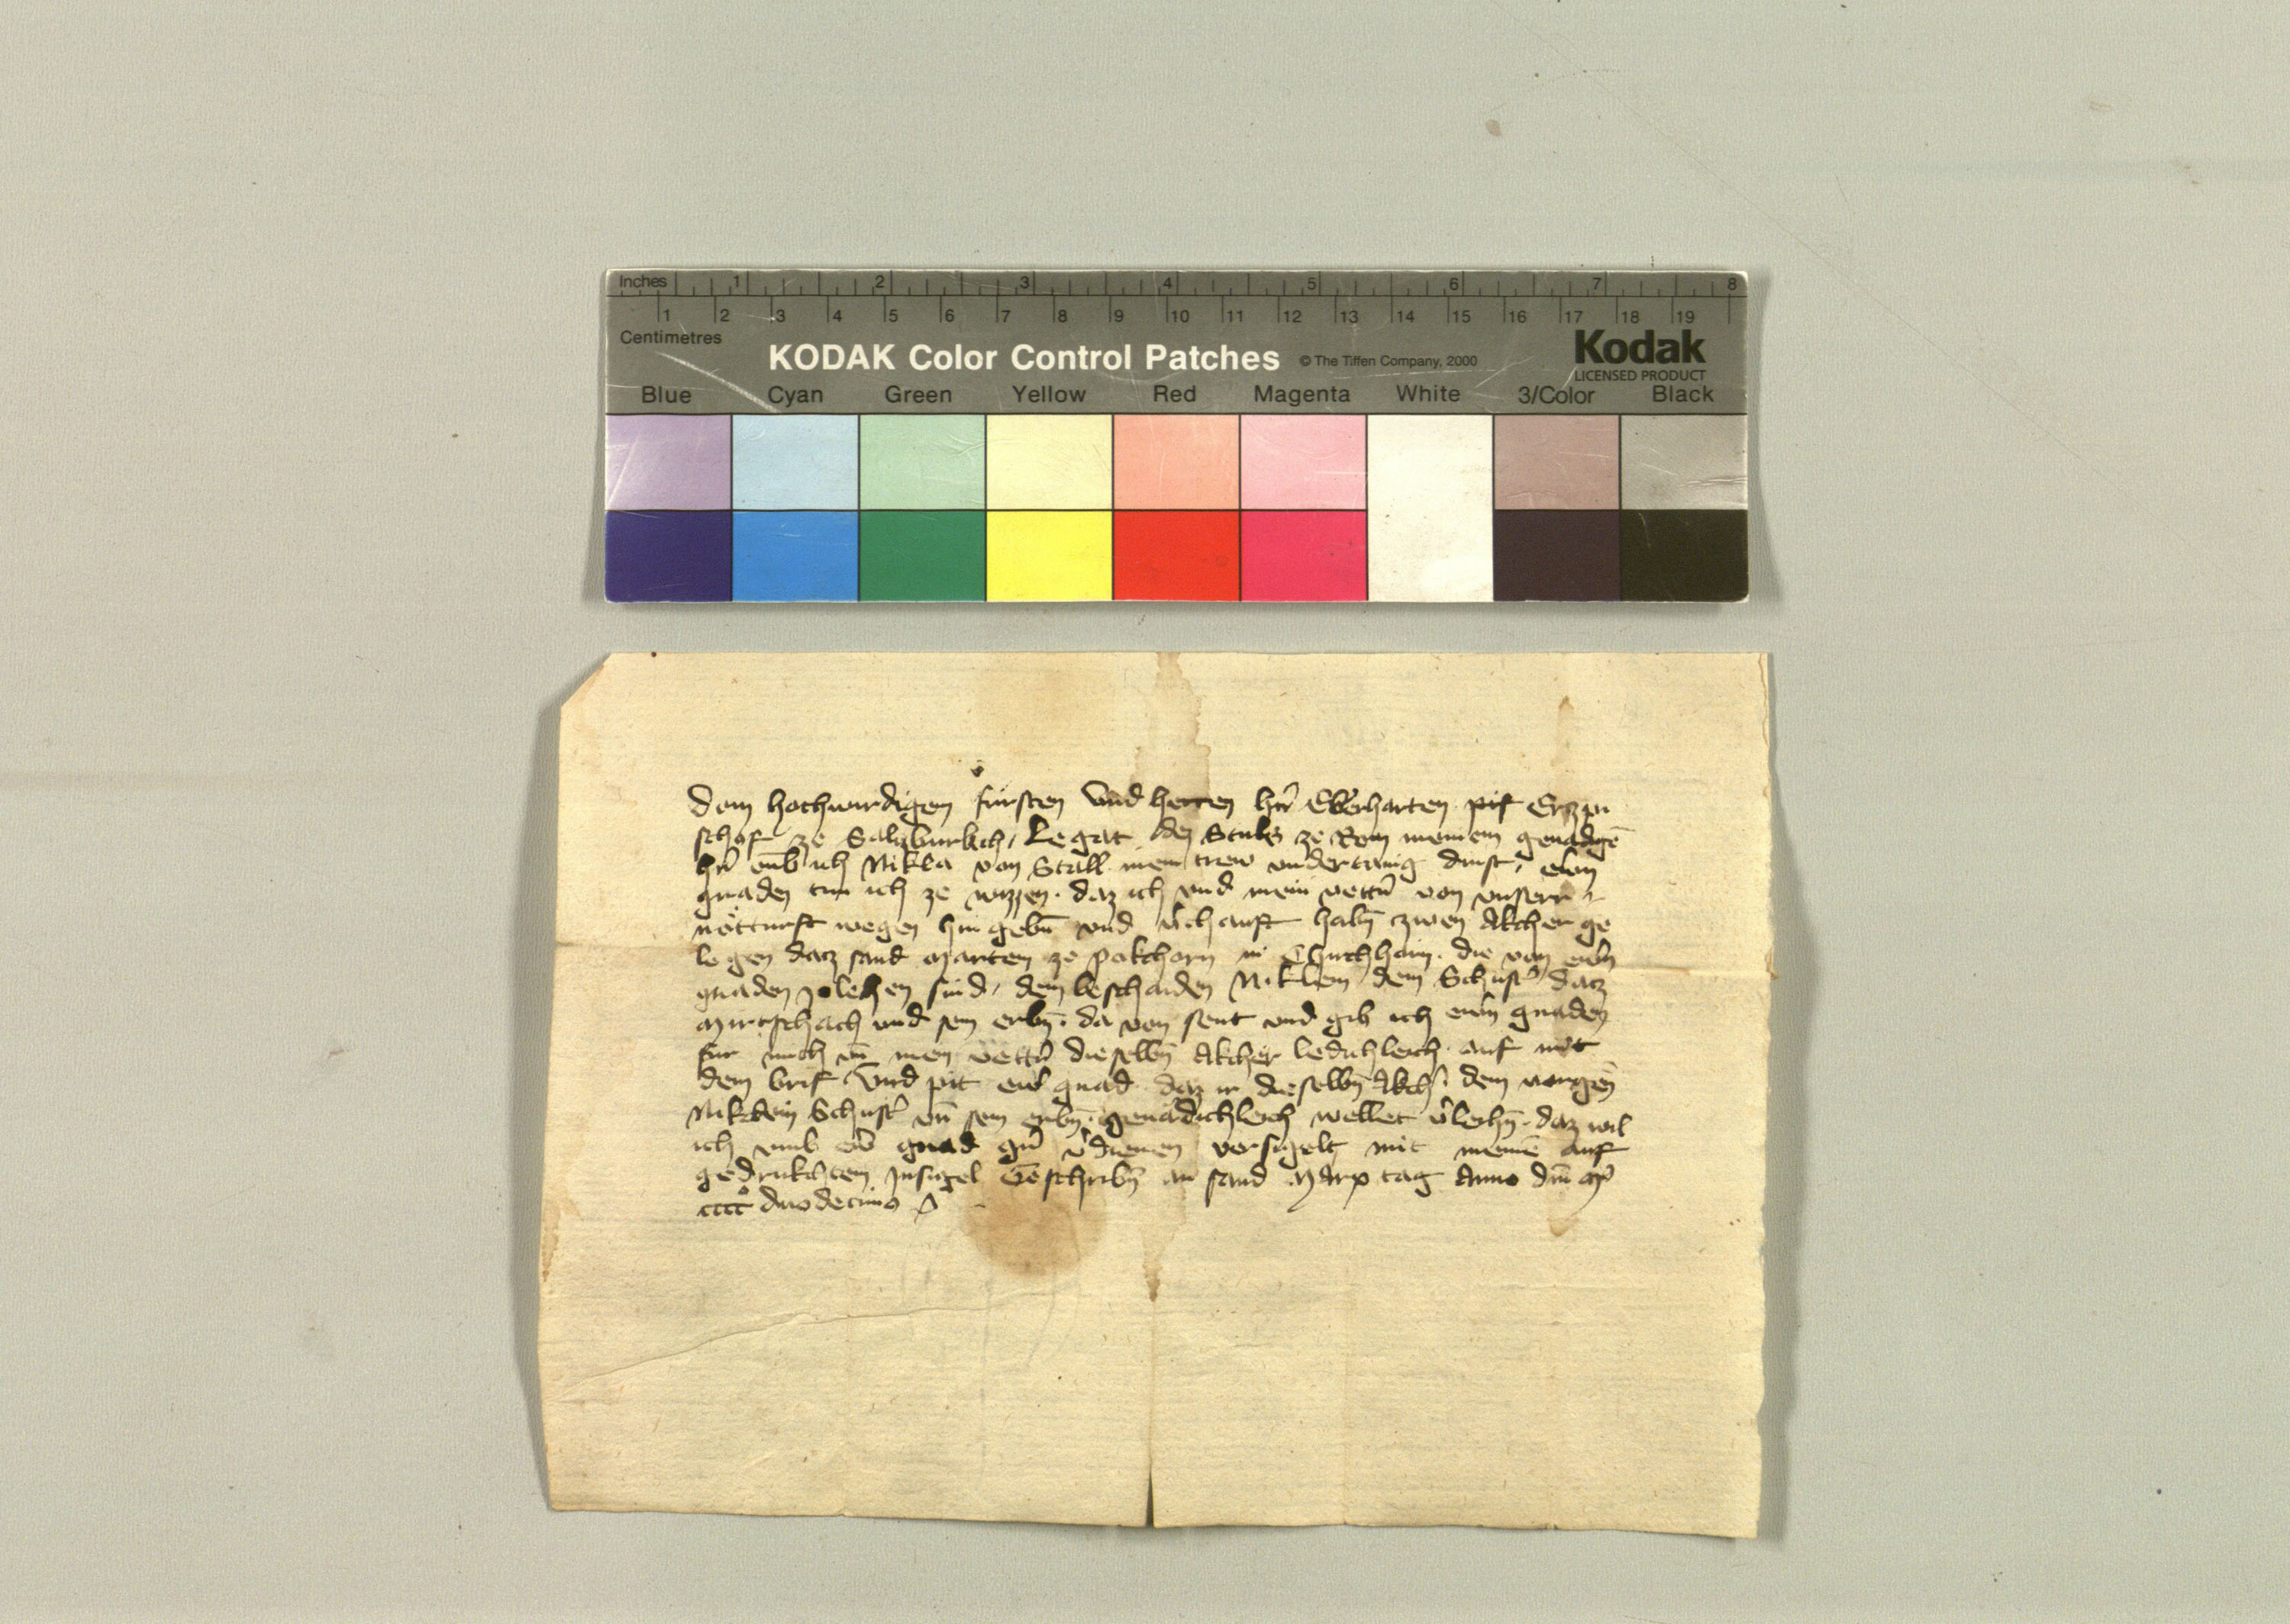 Inches 1 2 3 4 5 6 7 8
1 2 3 4 5 6 7 8 9 10 11 12 13 14 15 16 17 18 19
Centimetres
KODAK Color Control Patches © The Tiffen Company, 2000 Kodak
LICENSED PRODUCT
Blue Cyan Green Yellow Red Magenta White 3/Color Black
Dem hochwirdigen fürsten Vnd herren hr̄n Eberharten Erzpi
schof ze Salzburkch, Legat des Stuls ze Rom meinem genadgē
hr̄n ich Nikla von Stall mein trew vndertanig dinst, ewrn
gnaden tun ich ze wizzen. daz ich vnd mein vettn̄ von vnserr
nötturft wegen hin gebn̄ vnd v̄chauft habn̄ zwen Akcher ge
legen datz sand Marten ze pokchorn in Chirchhaim. die von ewrn̄
gnaden zelehen sind, dem beschaiden Niklein dem Schust̄ datz
Mirtschach vnd sein erbn̄. da von sent vnd gib ich ewrn̄ gnaden
fur mich vn̄ mein vettn̄ dieselbn̄ Akcher ledichleich auf mit
dem brif Vnd pit ewr̄ gnad daz ir dieselbn̄ Akch̄. dem vorgen̄
Niklein Schust̄ vn̄ sein erbn̄. genadichleich wellet v̄leihn̄. daz wil
ich vmb ew̄ gnad gn̄ v̄dienen versigelt mit meinē auf
gedrukchtem Insigel Geschribn̄ an sand Marx tag Anno dm̄ mº
ccccº duodecimo